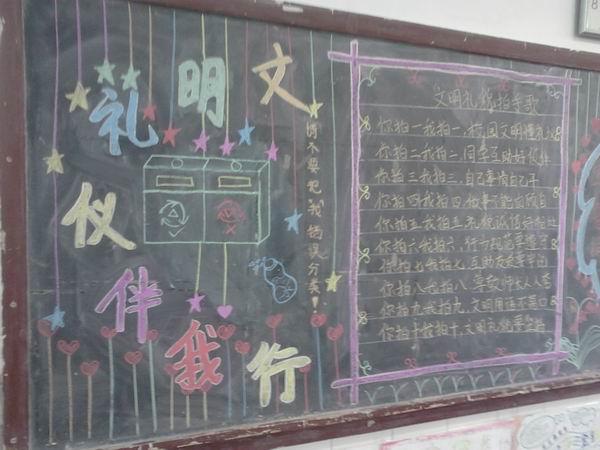 文明礼
仪
伴
我行
请不要把我错误分类!
文明礼貌拍手歌
你拍一我拍一,校园文明懂礼
你拍二我拍二,同学互助好伙伴
你拍三我拍三,自己事情自己干
你拍四我拍四
你拍五我拍五,礼貌
你拍六我拍六,行为规范
你拍七我拍七,互助友爱
你拍八我拍八,尊敬师长人人
你拍九我拍九,文明用语不离口
你拍十我拍十,文明礼貌